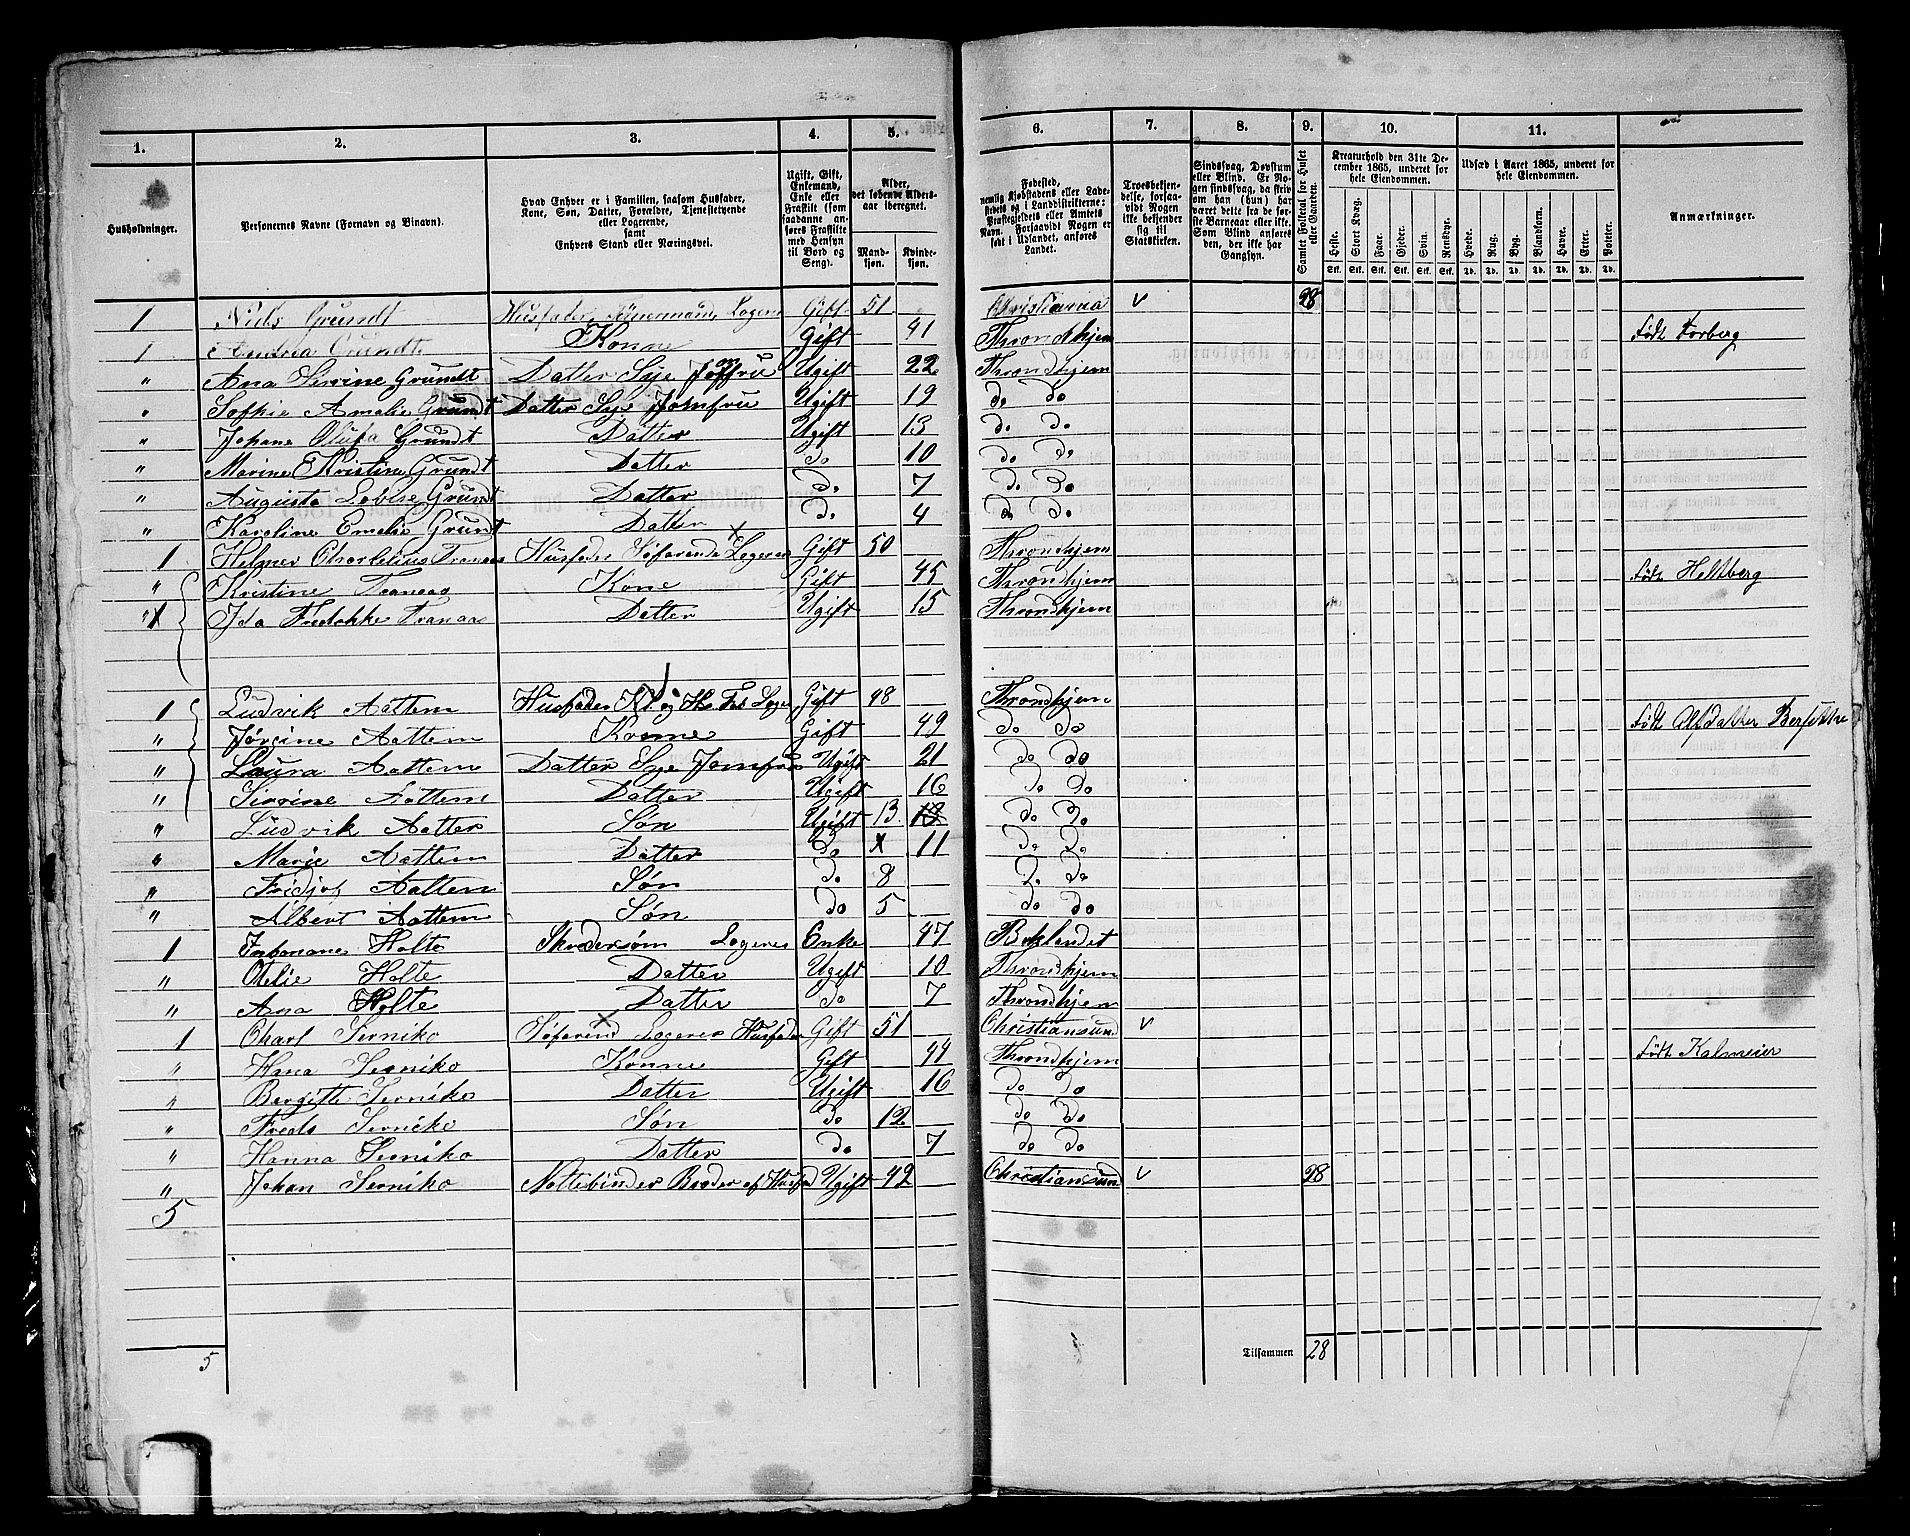 1. 2. 3. 4. 5. 6. 7. 8. 9. 10. 11.
Husholdninger.
Personernes Navne (Fornavn og Binavn).
Hvad Enhver er i Familien, saasom Husfader,
Kone, Søn, Datter, Forældre, Tjenestetyende
eller Logerende,
samt
Enhvers Stand eller Næringsvei.
Ugift, Gift,
Enkemand,
Enke eller
Fraskilt (som
saadanne an-
føres Fraskilte
med Hensyn
til Bord og
Seng).
Alder,
det løbende Alders-
aar iberegnet.
Mand-
kjøn.
Kvinde-
kjøn.
Fødested,
nemlig Kjøbstadens eller Lade-
stedets og i Landdistrikterne:
Præstegjeldets eller Amtets
Navn. Forsaavidt Nogen er
født i Udlandet, anføres
Landet.
Troesbekjen-
delse, forsaa-
vidt Nogen
ikke bekjender
sig til
Statskirken.
Sindssvag, Døvstum
eller Blind. Er No-
gen sindssvag, da skriv
om han (hun) har
været dette fra de før-
ste Barneaar eller ikke.
Som Blind ansføres
den, der ikke har
Gangsyn.
Samlet Folketal for Huset
eller Gaarden.
Kreaturhold den 31te De-
cember 1865, underet for
hele Eiendommen.
Heste. Stort Kvæg. Faar. Gjeder. Svin. Rensdyr.
Stk. Stk. Stk. Stk. Stk. Stk.
Udsæd i Aaret 1865, underet for
hele Eiendommen.
Hvede. Rug. Byg. Blandkorn. Havre. Erter. Poteter.
Td. Td. Td. Td. Td. Td. Td.
Anmærkninger.
1 Niels Grundt Husfader Logerer Gift 51 Christiania v 28
1 Andrea Grundt Konne Gift 41 Throndhjem født Forberg
" Ana Sevrine Grundt Datter Sye Jomfru Ugift 22 Throndhjem
" Soffie Amalie Grundt Datter Sye Jomfru Ugift 19 do do
" Johane Olufa Grundt Datter Ugift 13 do do
" Marine Kristine Grundt Datter do 10 do do
" Augusta Lovise Grundt Datter do 7 do do
" Karoline Emelie Grundt Datter do 4 do do
1 Helmer Charlelius Tranaas Husfader Søfarende Logeres Gift 50 Throndhjem
" Kristine Tranaas Kone Gift 45 Throndhjem født Heltberg
" Ida Fredrikke Tranaas Datter Ugift 15 Throndhjem
1 Ludvik Aattem Husfader Gift 48 Throndhjem
" Jørgine Aattem Konne Gift 49 do do født Olsdatter
" Laura Aattem Datter Sye Jomfru Ugift 21 do do
" Sivrine Aattem Datter Ugift 16 do do
" Ludvik Aattem Søn Ugift 13 do do
" Marie Aattem Datter do 11 do do
" Fridjof Aattem Søn do 8 do do
" Albert Aattem Søn do 5 do do
1 Holte Skredersøm Logeres Enke 47 Baklandet
" Otelie Holte Datter Ugift 10 Throndhjem
" Ana Holte Datter do 7 Throndhjem
1 Charl Serniko Søfarend Logeres Husfader Gift 51 Christiansund v
" Hana Serniko Konne Gift 44 Throndhjem født Kalmeier
" Bergitte Serniko Datter Ugift 16 do do
" Freds Serniko Søn do 12 do do
" Hanna Serniko Datter do 7 do do
" Johan Serniko Nottebinder Broder af Husfad Ugift 42 Christiansund v 28
5
5 Tilsammen 28